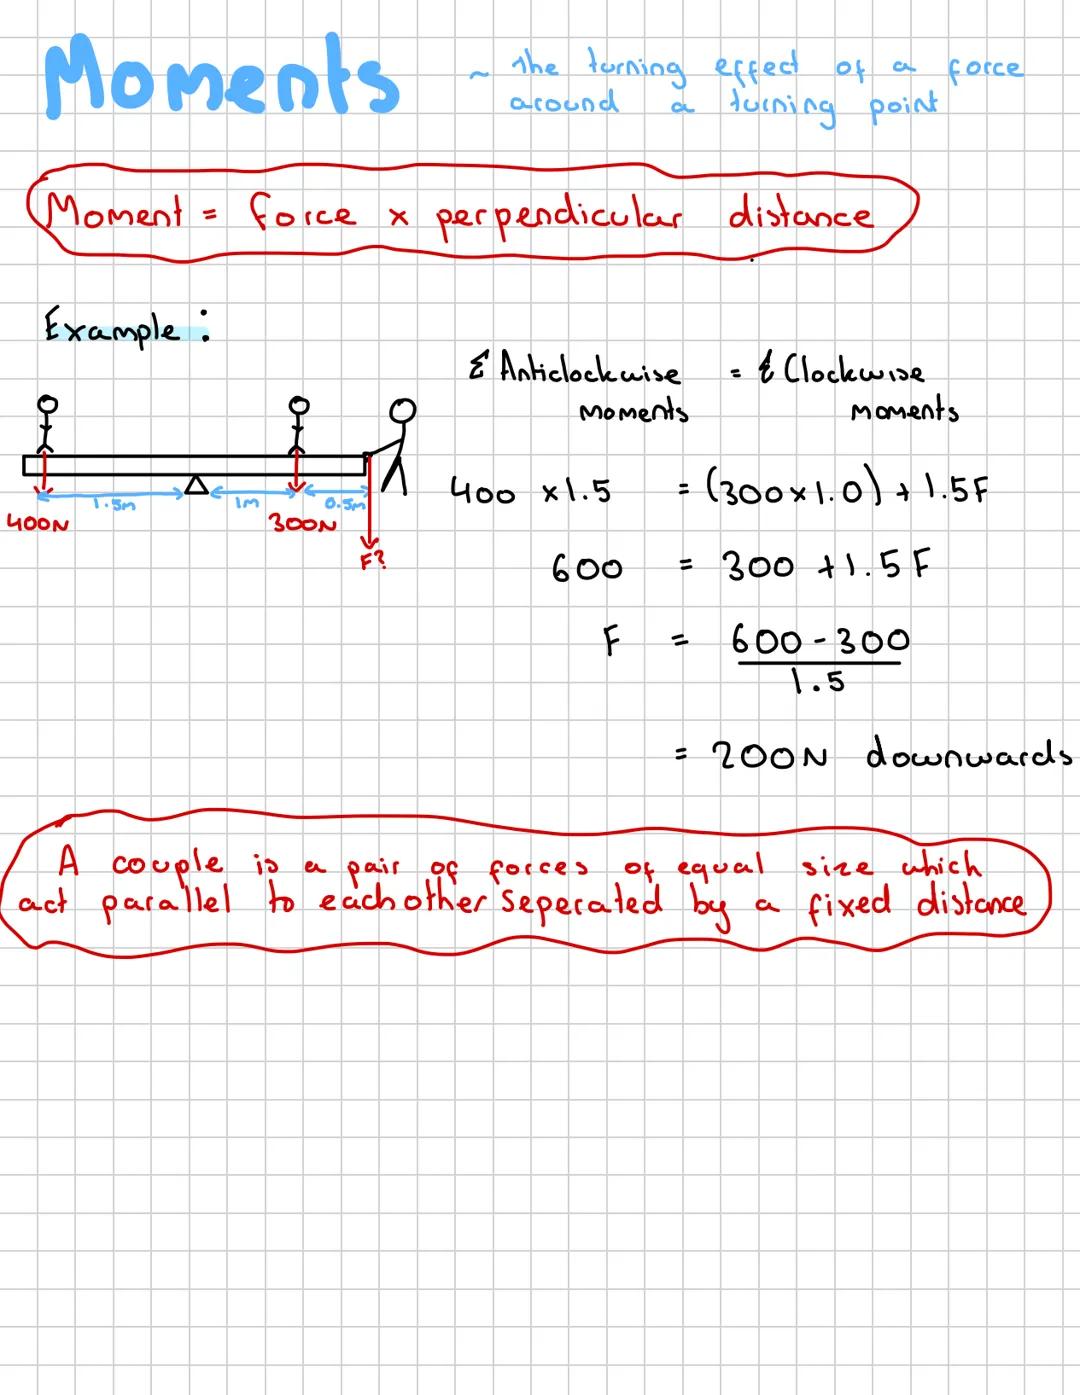 Moments
~ the turning effect of a force
around a turning point
Moment = force x perpendicular distance
Example:
Σ Anticlockwise = Σ Clockwise
moments moments
400 x 1.5 = (300 x 1.0) + 1.5F
600 = 300 + 1.5F
F = 600 - 300
1.5
= 200N downwards
1.5m 1m 0.5m
400N 300N
F?
A couple is a pair of forces of equal size which
act parallel to each other seperated by a fixed distance